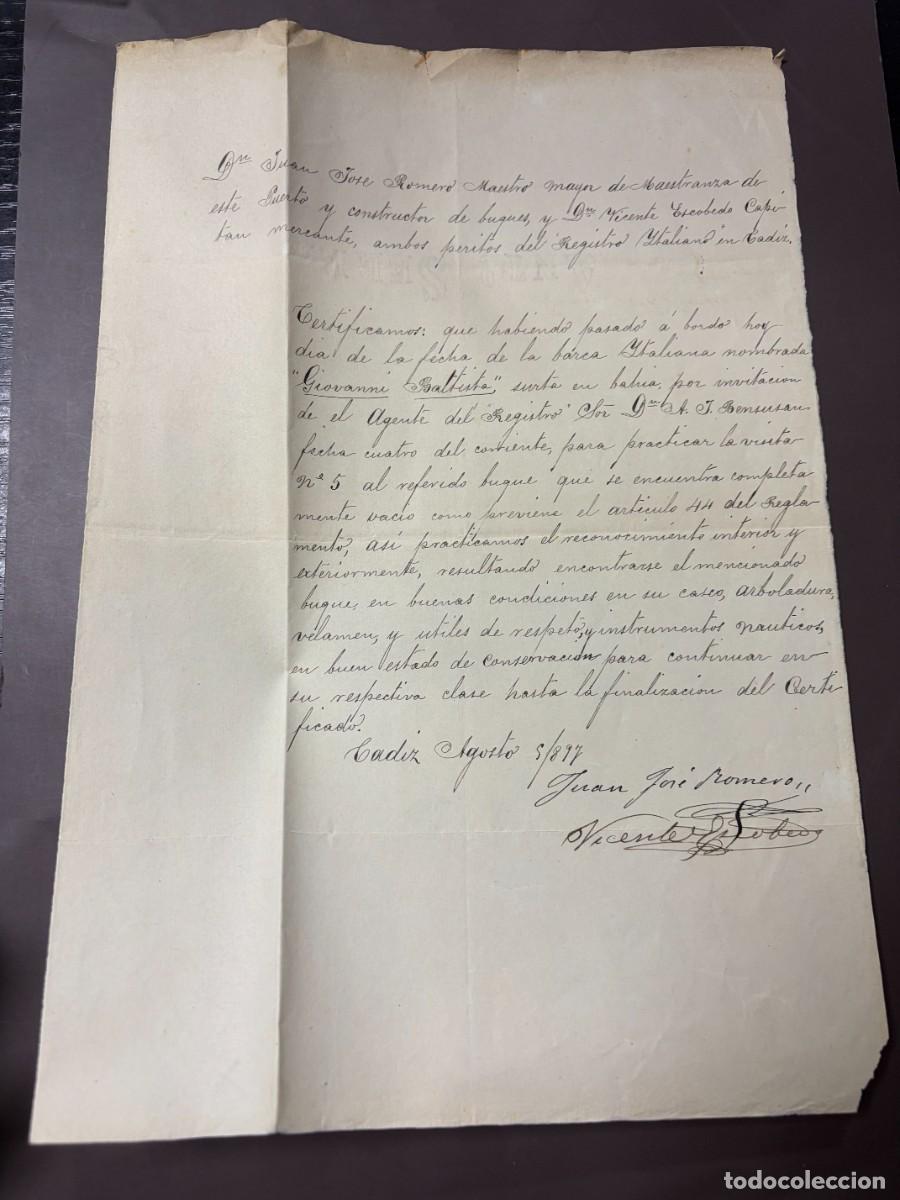 Dn Juan José Romero Maestro mayor de Maestranza de
este Puerto y constructor de buques, y Dn Vicente Escobedo Capi-
tan mercante, ambos peritos del "Registro Italiano" en Cadiz.
Certificamos: que habiendo pasado á bordo hoy
dia de la fecha de la barca Italiana nombrada
"Giovanni Battista", surta en bahia, por invitacion
de el Agente del "Registro" Sor Dn A. J. Bensusan
fecha cuatro del corriente, para practicar la visita
nº 5 al referido buque que se encuentra completa
mente vacio como previene el articulo 44 del Regla-
mento, así practicamos el reconocimiento interior y
exteriormente, resultando encontrarse el mencionado
buque, en buenas condiciones en su casco, arboladura,
velamen, y utiles de respeto, y instrumentos nauticos,
en buen estado de conservación para continuar en
su respectiva clase hasta la finalizacion del Certi
ficado.
Cadiz Agosto 5/897
Juan José Romero
Vicente Escobedo
todocoleccion